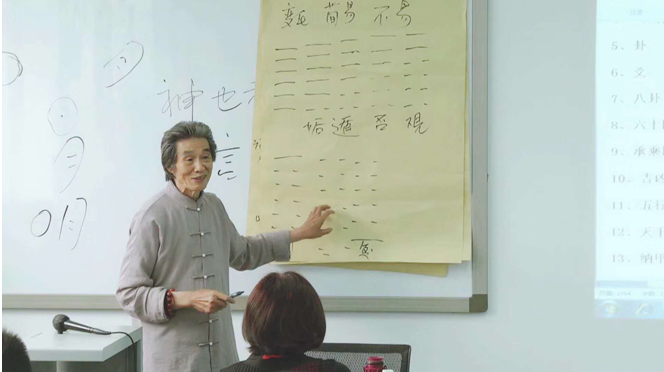 变易 简易 不易
姤 遯 否 观
神也
言
月
明
5、卦
6、爻
7、八卦
8、六十
9、承乘
10、吉凶
11、五行
12、天干
13、纳甲